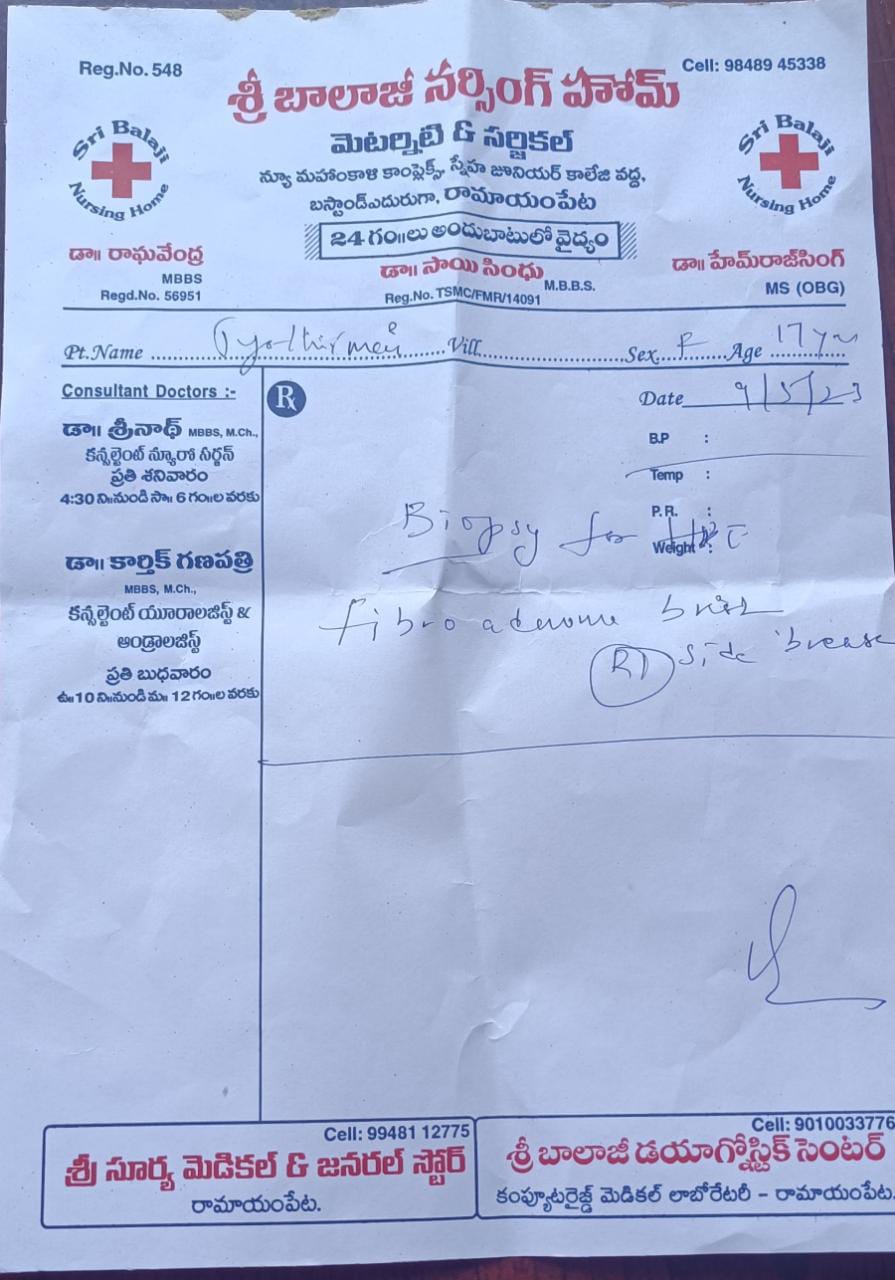 Reg.No. 548
Cell: 98489 45338
శ్రీ బాలాజీ నర్సింగ్ హోమ్
Sri Balaji Nursing Home
Sri Balaji Nursing Home
మెటర్నిటి & సర్జికల్
న్యూ మహాంకాళ కాంప్లెక్స్, స్నేహ జూనియర్ కాలేజి వద్ద,
బస్టాండ్ఎదురుగా, రామాయంపేట
24 గం॥లు అందుబాటులో వైద్యం
డా॥ రాఘవేంద్ర
MBBS
Regd.No. 56951
డా॥ సాయి సింధు
M.B.B.S.
Reg.No. TSMC/FMR/14091
డా॥ హేమ్‌రాజ్‌సింగ్
MS (OBG)
Pt.Name Jyothirmai Vill. Sex F Age 17 yrs
Consultant Doctors :-
డా॥ శ్రీనాథ్ MBBS, M.Ch.,
కన్సల్టెంట్ న్యూరో సర్జన్
ప్రతి శనివారం
4:30 ని॥నుండి సా॥ 6 గం॥ల వరకు
డా॥ కార్తిక్ గణపత్రి
MBBS, M.Ch.,
కన్సల్టెంట్ యూరాలజిస్ట్ &
ఆండ్రాలజిస్ట్
ప్రతి బుధవారం
ఉ॥ 10 ని॥నుండి మ॥ 12 గం॥ల వరకు
Rx
Date 9/5/23
B.P :
Temp :
P.R. :
Weight :
Biopsy for
fibroadenoma
RT side breast
Cell: 99481 12775
శ్రీ సూర్య మెడికల్ & జనరల్ స్టోర్
రామాయంపేట.
Cell: 9010033776
శ్రీ బాలాజీ డయాగ్నోస్టిక్ సెంటర్
కంప్యూటరైజ్డ్ మెడికల్ లాబోరేటరీ - రామాయంపేట.